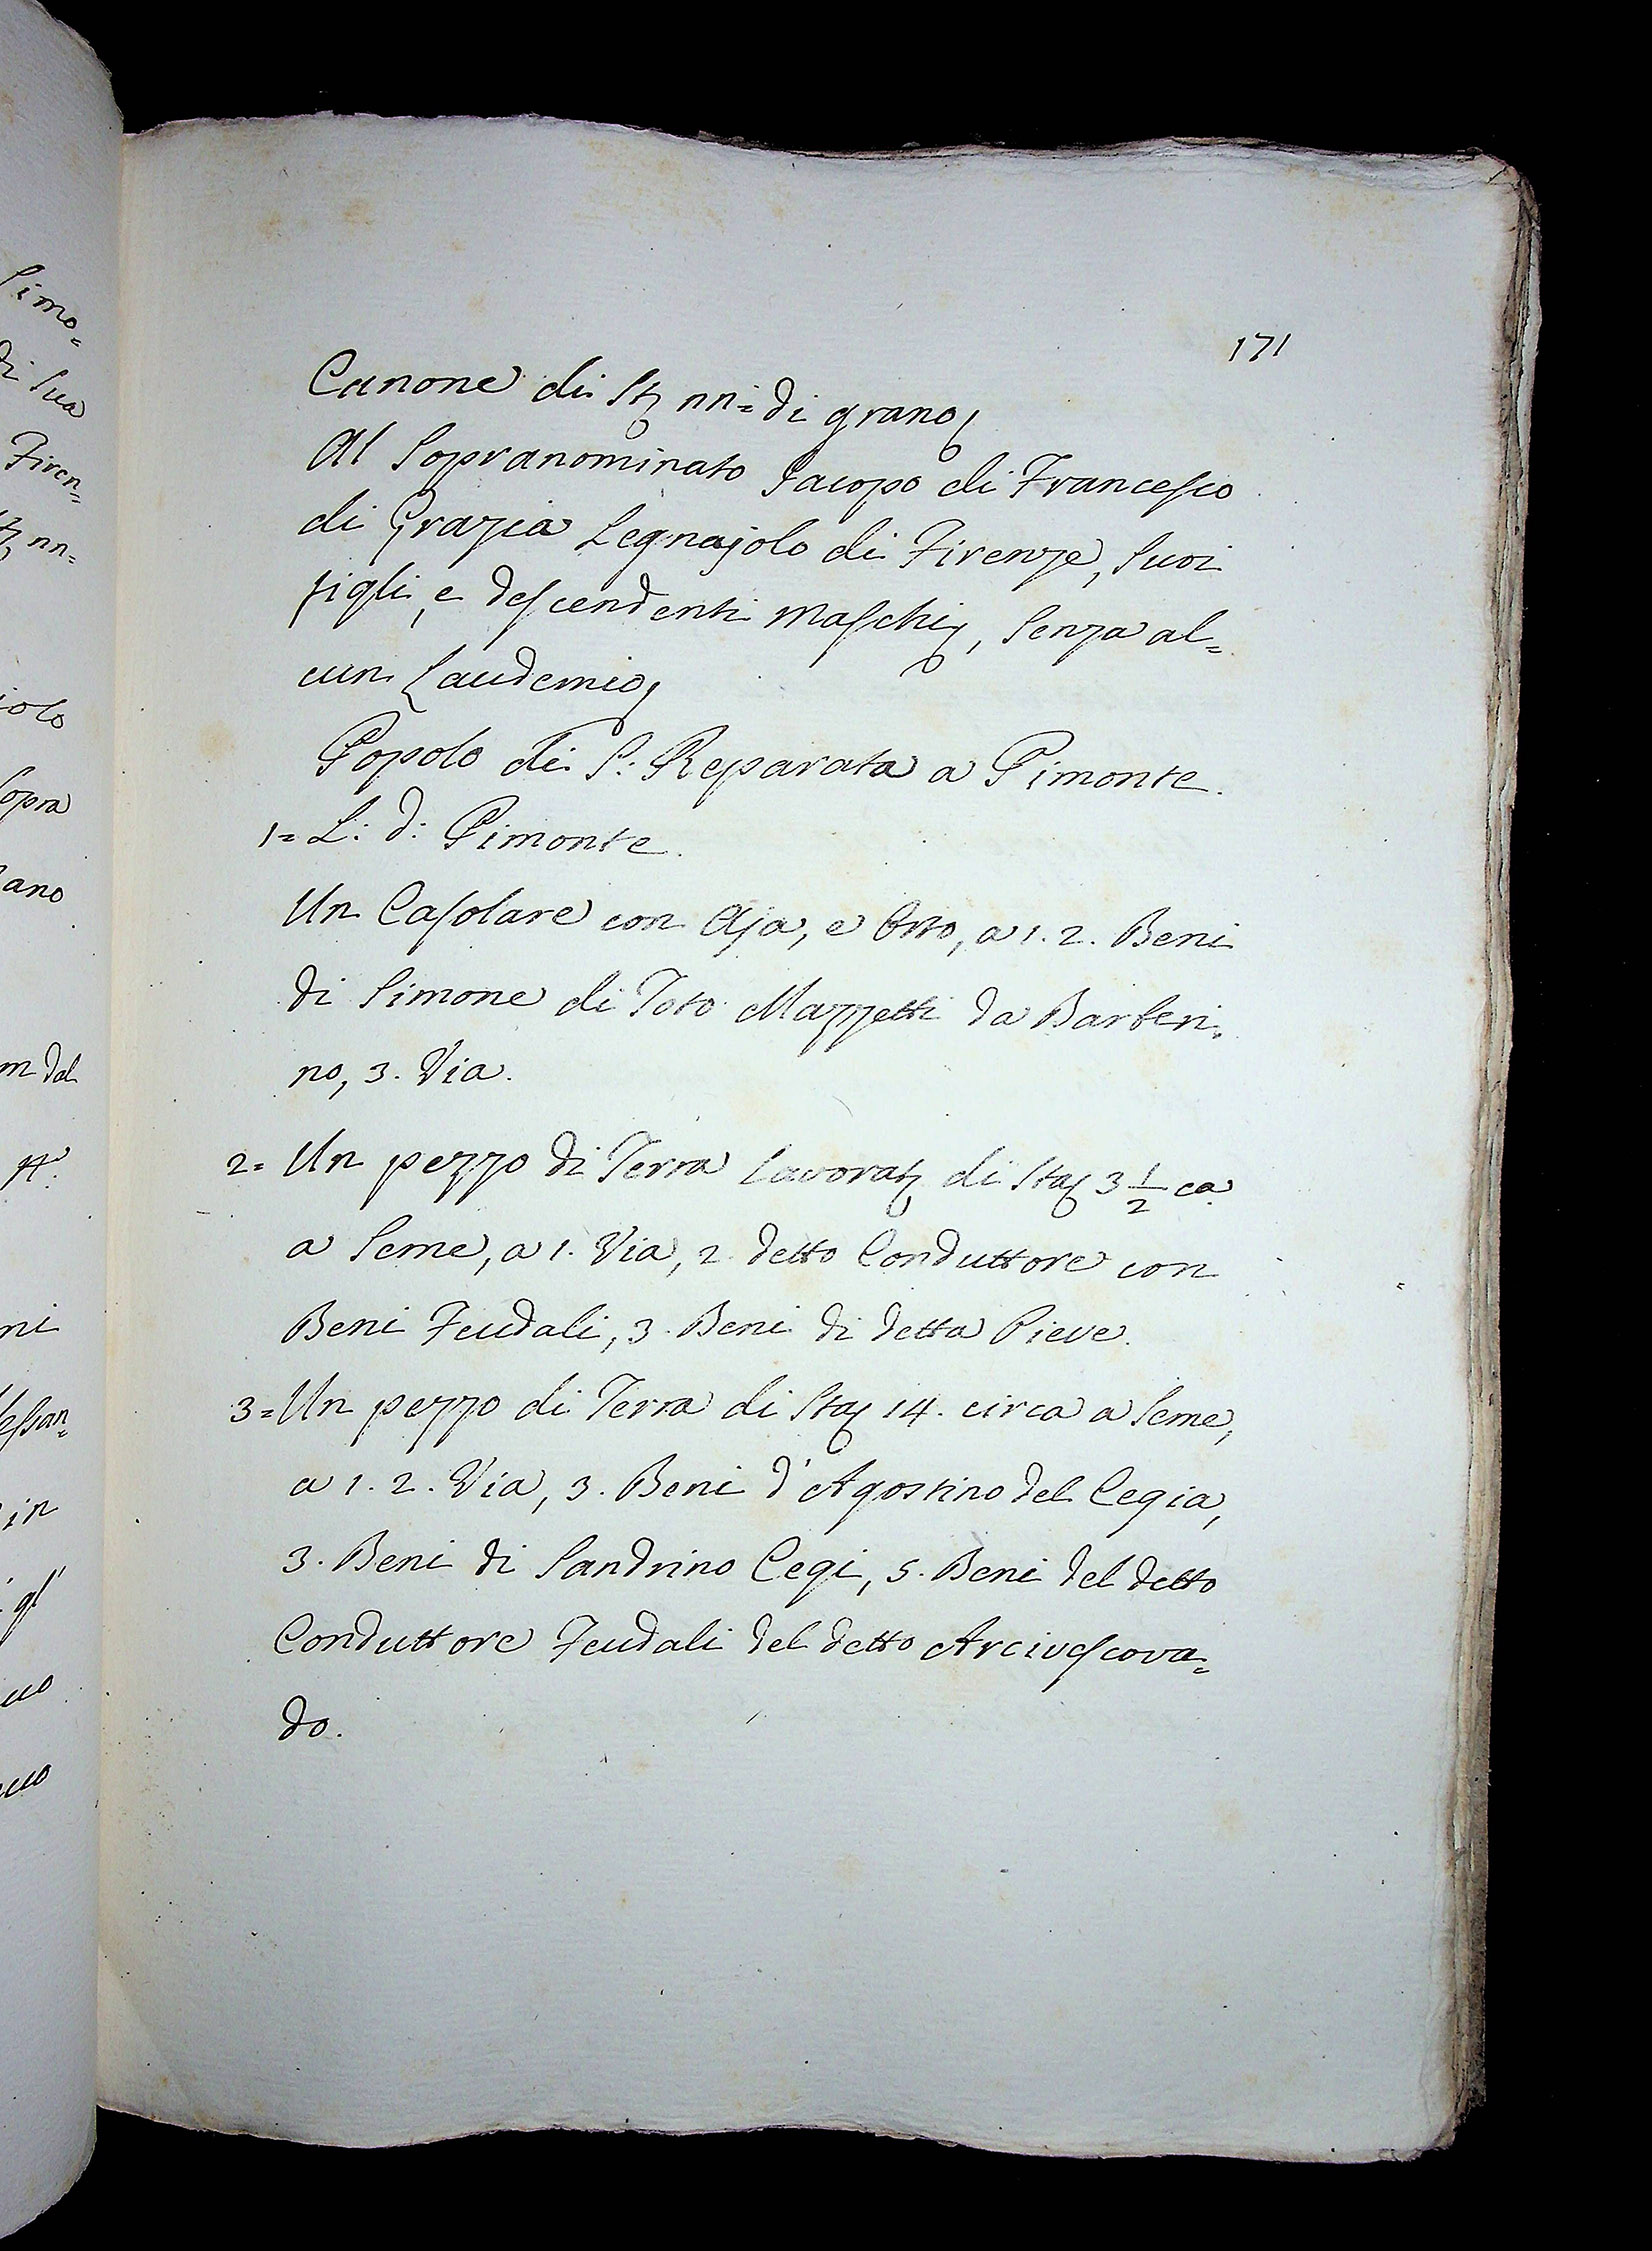 Simo=
di Sua
Firen=
nn=
iolo
Sopra
ano
m dal
ni
in
gl'
171
Canone di St nn= di grano
Al Sopranominato Jacopo di Francesco
di Grazia Legnajolo di Firenze, Suoi
figli, e descendenti Maschi, Senza al=
cun Laudemio
Popolo di S: Reparata a Pimonte.
1= L: d: Pimonte.
Un Casolare con Aja, e Orto, a 1. 2. Beni
di Simone di Toto Mazzetti da Barberi=
no, 3. Via.
2= Un pezzo di Terra Lavorat di Sta 3 1/2 ca
a Seme, a 1. Via, 2 detto Conduttore con
Beni Feudali, 3. Beni di detta Pieve.
3= Un pezzo di Terra di Sta 14. circa a Seme,
a 1. 2. Via, 3. Beni d'Agostino del Cegia,
3. Beni di Sandrino Cegi, 5. Beni del detto
Conduttore Feudali del detto Arcivescova=
do.